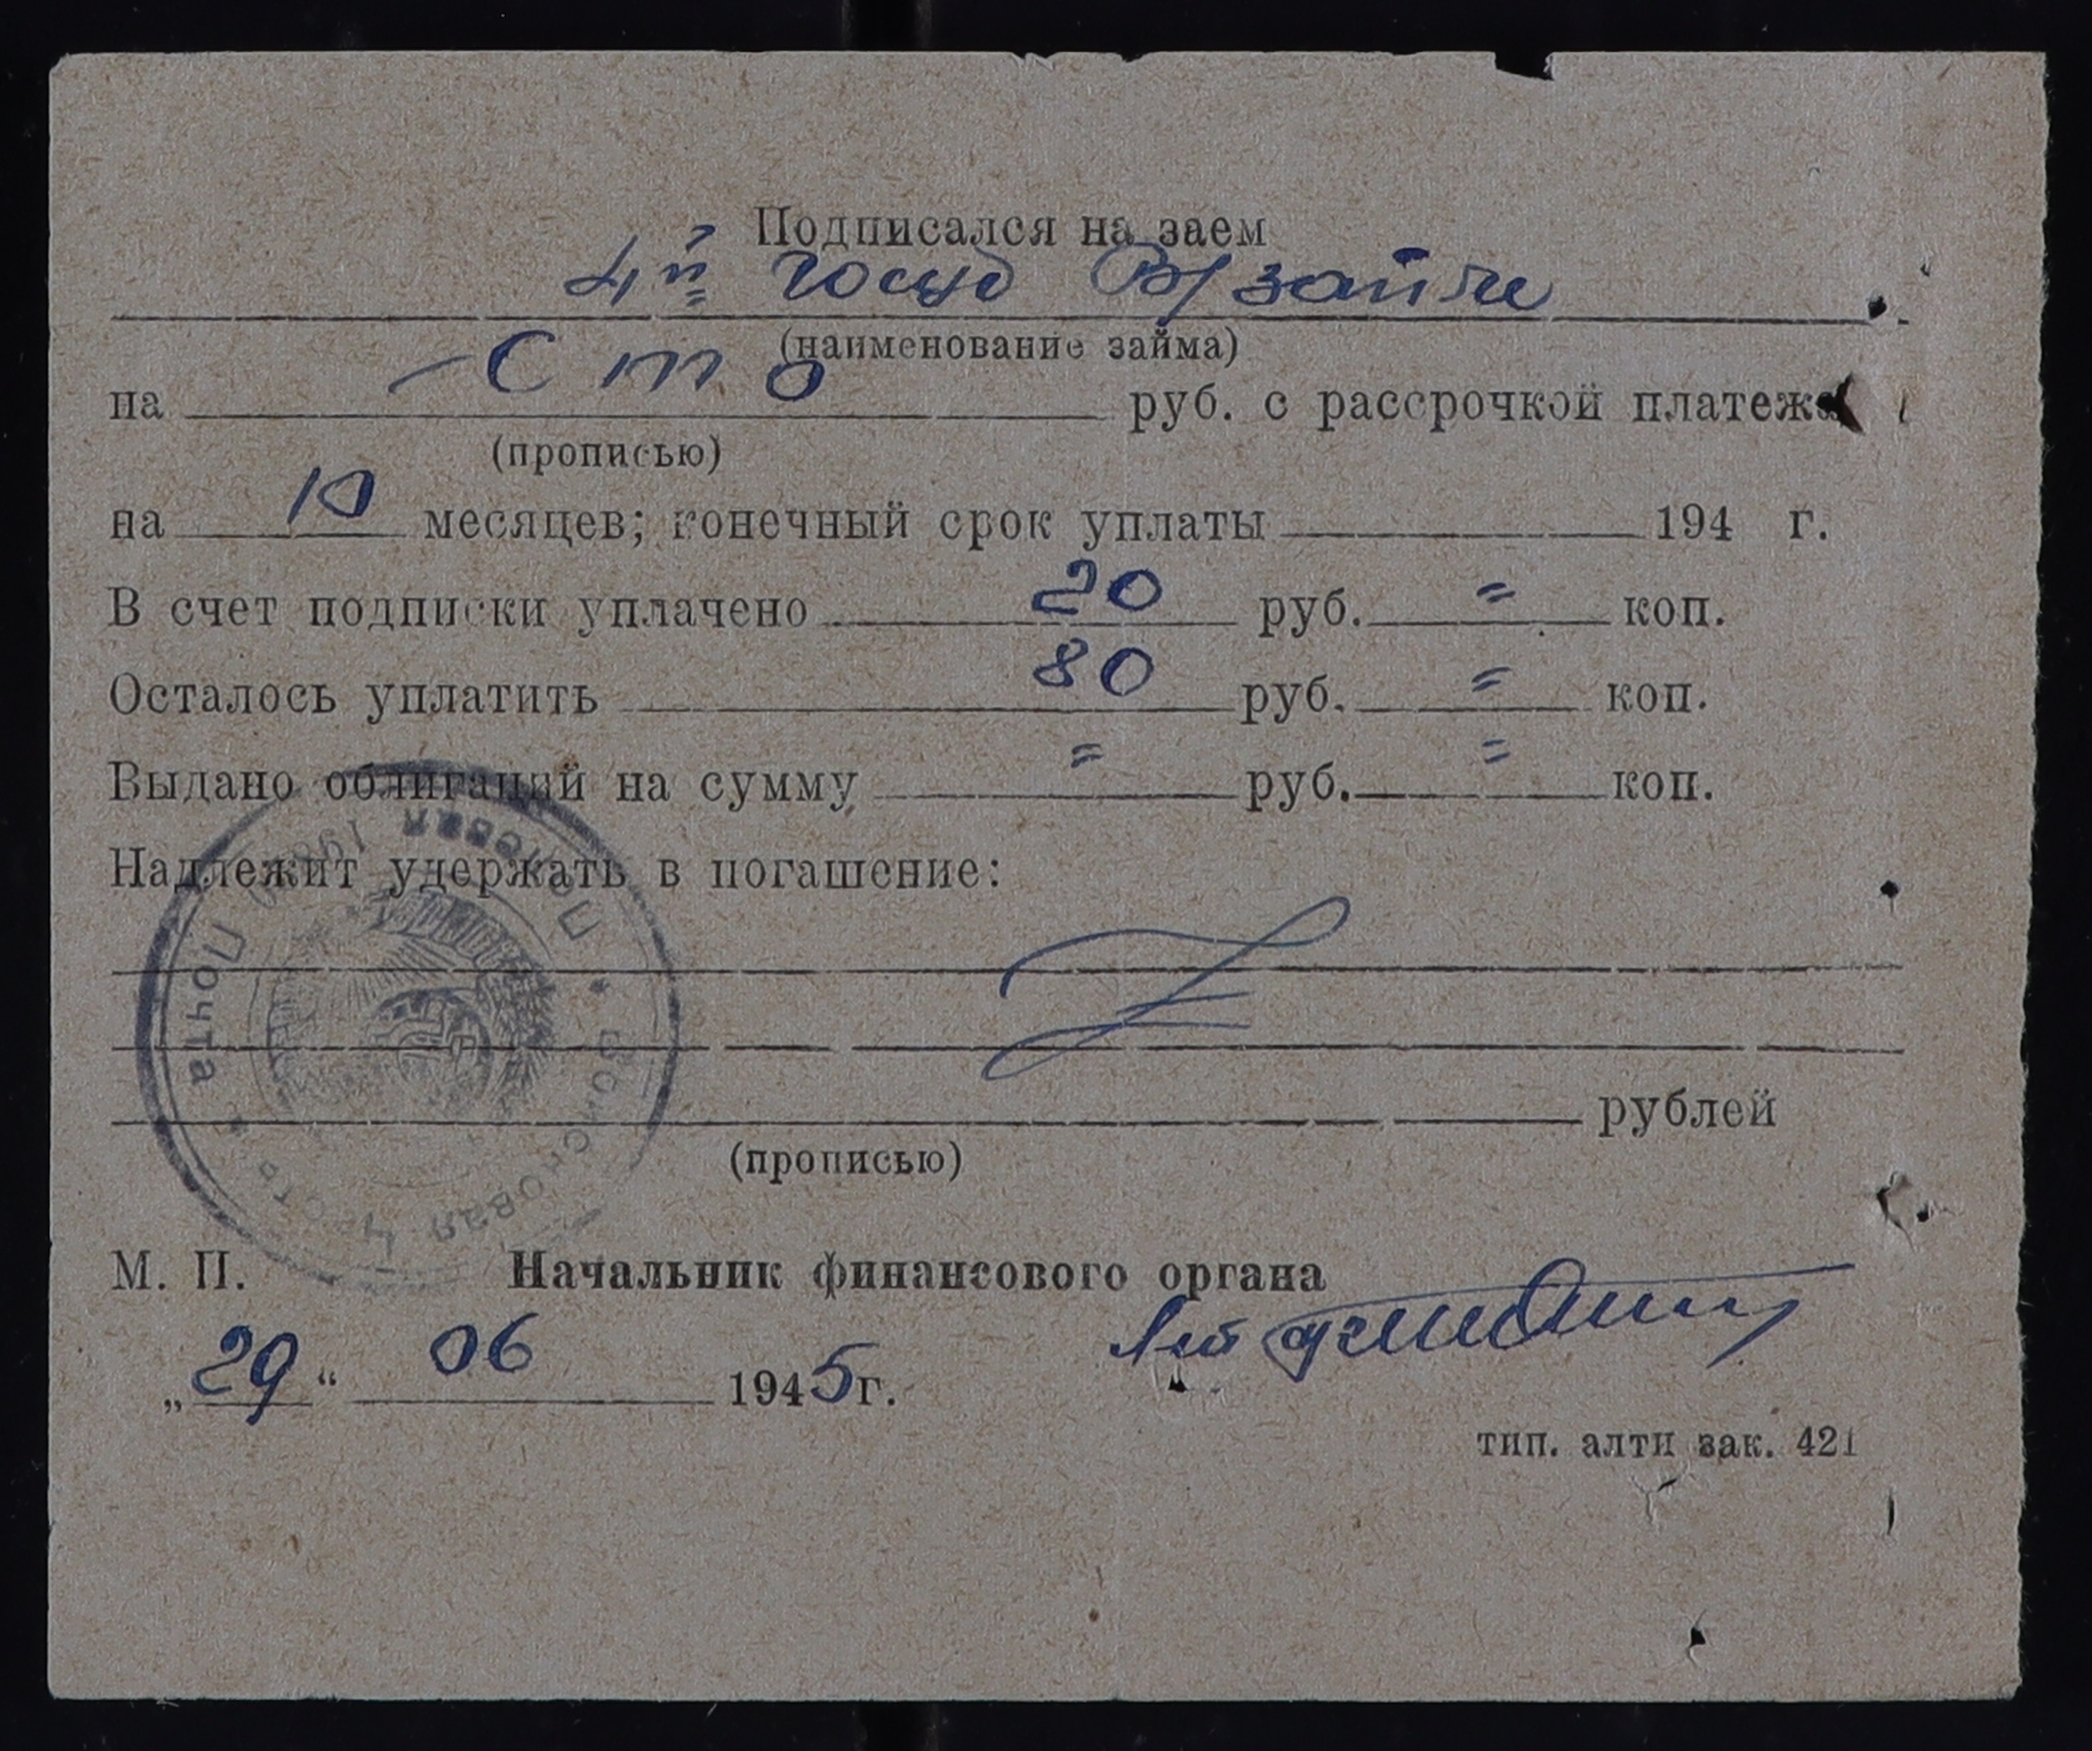 Подписался на заем
4й госуд В/займ
(наименование займа)
на Сто руб. с рассрочкой платежа
(прописью)
на 10 месяцев; конечный срок уплаты 194 г.
В счет подписки уплачено 20 руб. = коп.
Осталось уплатить 80 руб. = коп.
Выдано облигаций на сумму = руб. = коп.
Надлежит удержать в погашение:
рублей
(прописью)
Полевая Почта * Войсковая Часть *
М. П. Начальник финансового органа
„29“ 06 1945 г.
тип. алти зак. 421